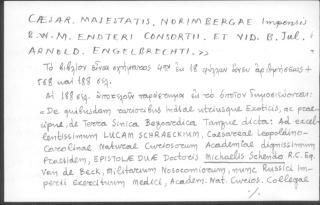 CÆSAR. MAJESTATIS, NORIMBERGAE Impensis
& W. M. ENDTERI CONSORTII. ET VID. B. Jul.
ARNOLD. ENGELBRECHTI. >>
Τὸ βιβλίον εἶναι σχήματος 4ον ἐκ 18 φύλλων ἄνευ ἀριθμήσεως +
568 καὶ 188 σελ.
Αἱ 188 σελ. ἀποτελοῦν παράρτημα εἰς τὸ ὁποῖον δημοσιεύονται:
«De quibusdam rarioribus Indiae utriusque Exoticis, ac prae-
cipue, de Terra Sinica Bezoardica Tangue dicta: Ad excel-
lentissimum LUCAM SCHRAECKIUM, Caesareae Leopoldino-
Carolinae Naturae Curiosorum Academiae dignissimum
Praesidem, EPISTOLÆ DUÆ Doctoris Michaelis Schendo R.C. Eq.
Van de Beck, militarium Nosocomiorum, nunc Russici Im-
perii exercituum medici, Academ. Nat. Curios. Collegae
·/.